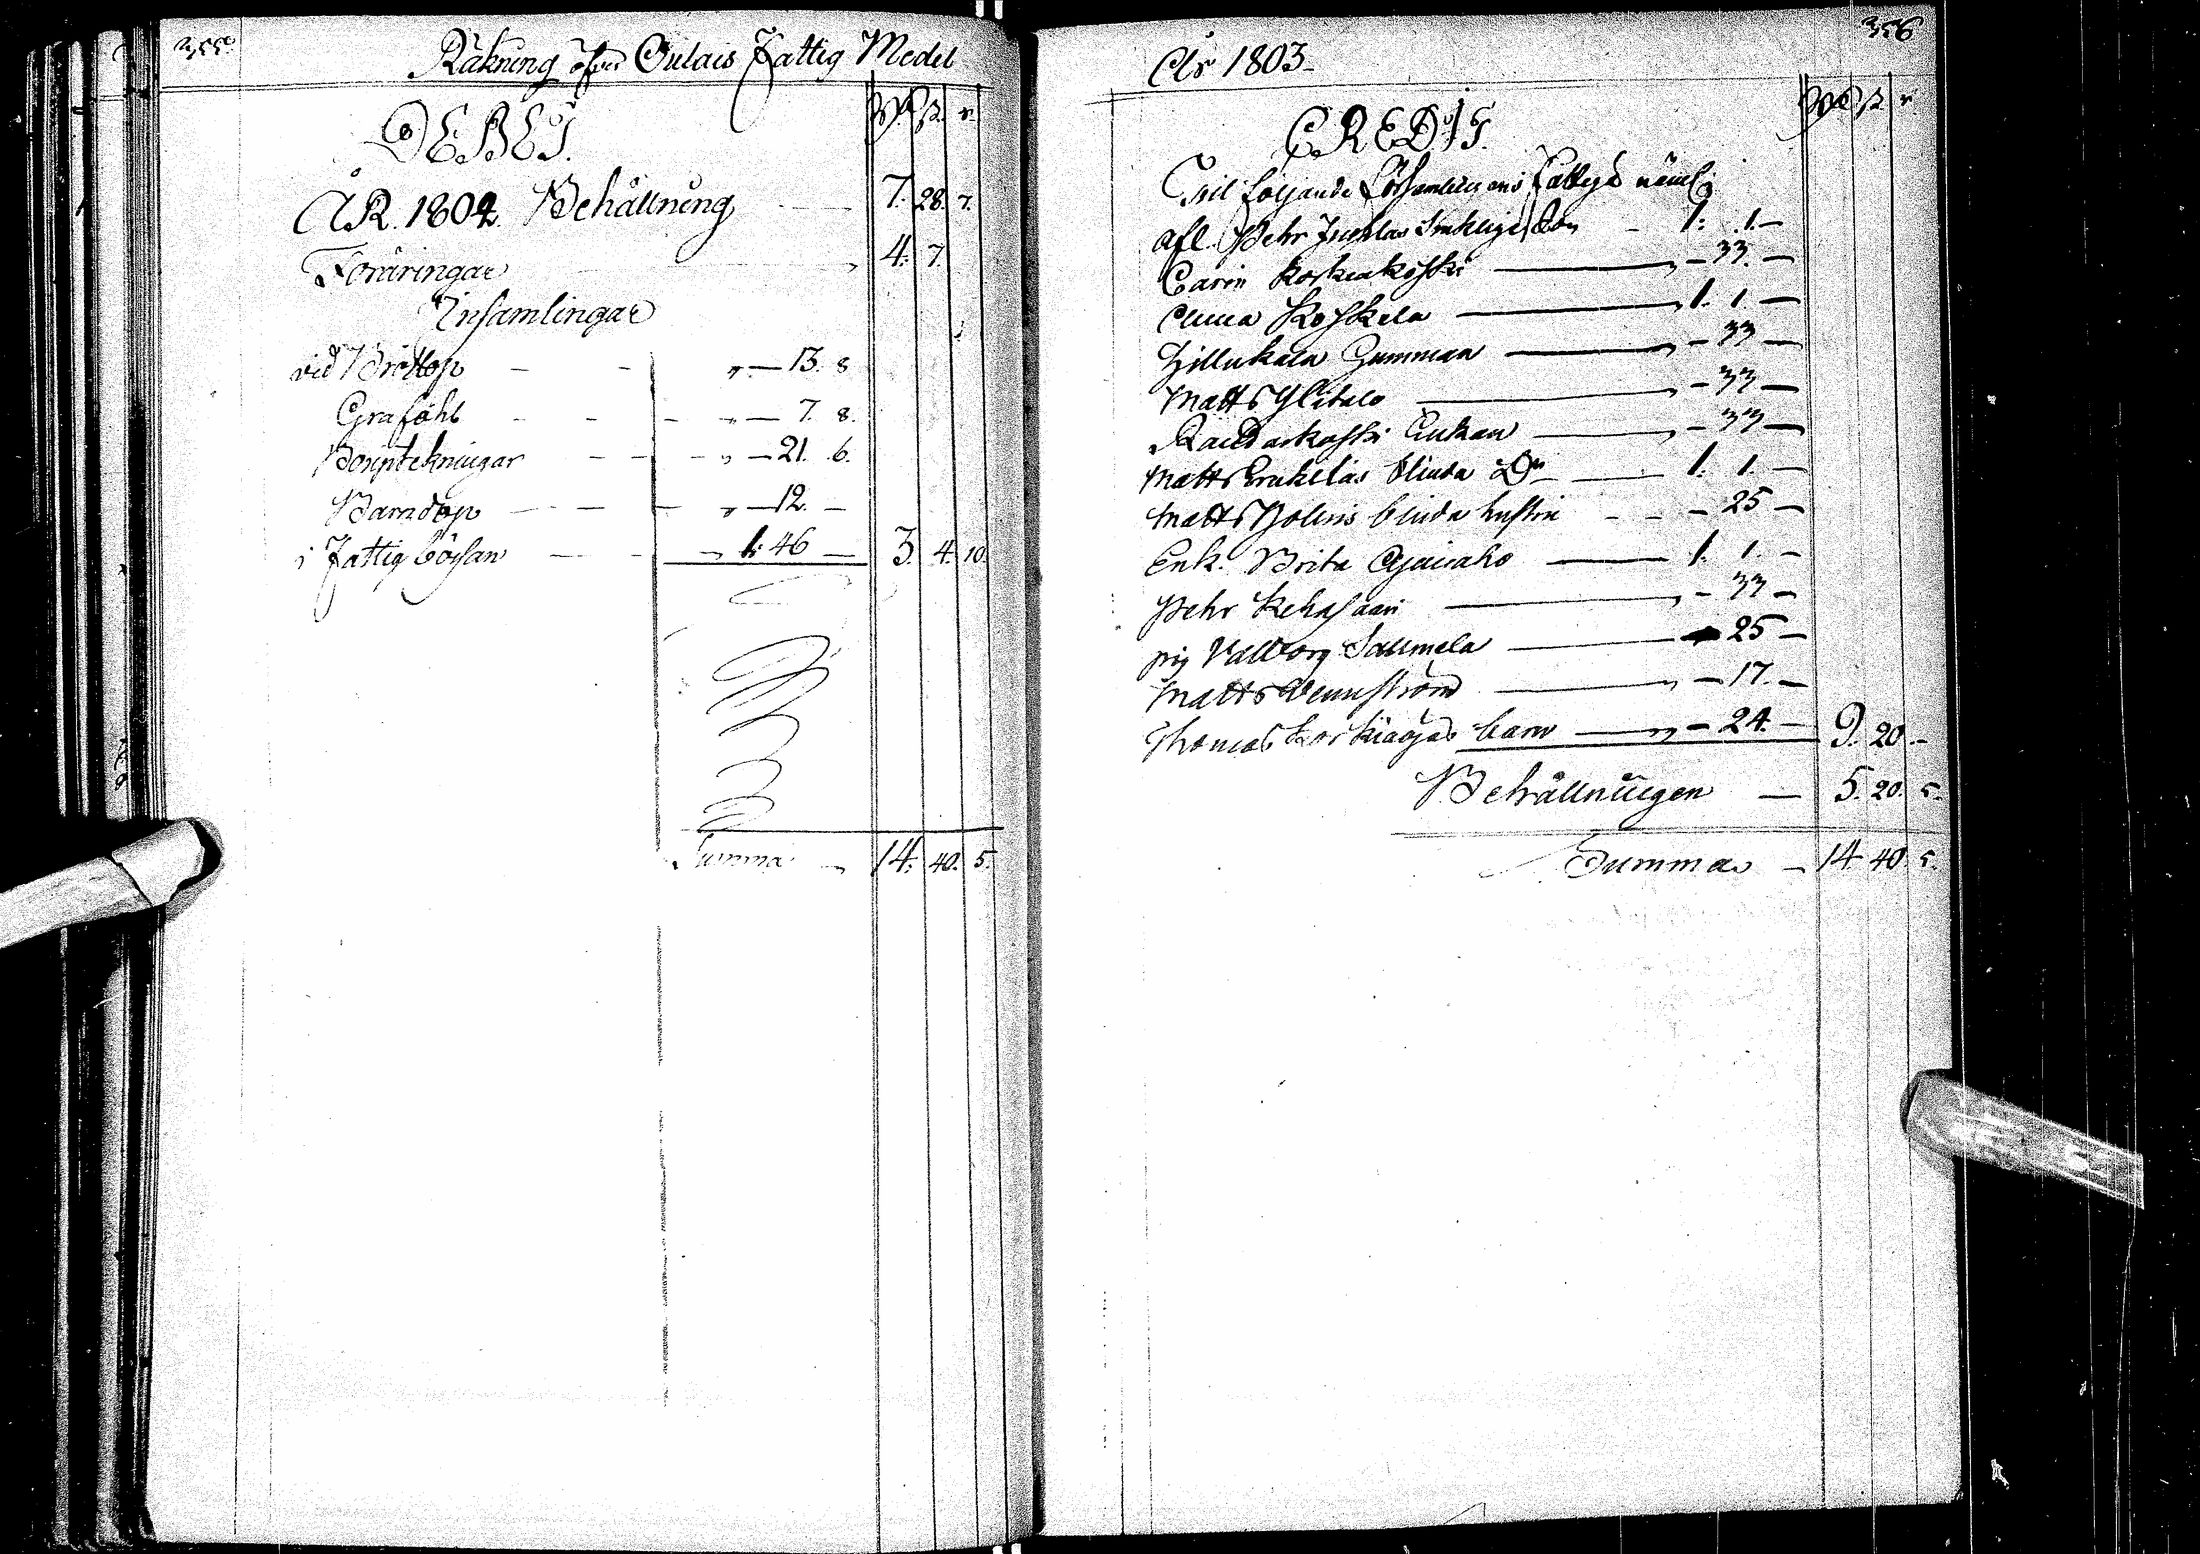 355.
Räkning öfver Oulais Fattig Medel
DEBET.
ÅR. 1802. Behållning 7. 28. 7.
Föräringar 4: 7.
Insamlingar
vid Bröllop „ — 13. 8
Graföhl „ — 7. 8.
Bortekningar „ — 21. 6.
Barndop „ — 12. —
i Fattig bössan 1: 46 — 3. 4. 10.
Summa 14. 40. 5.
356
År 1803.
CREDIT.
Til följande Församlingens Fattige nämlig
afl. Pehr Juholas 1: 1. —
Carin Koskenkoski „ — 33. —
Anna Koskela 1. 1 —
Hillukala Gumman „ — 33 —
Matts Ylitalo „ — 33 —
Raudaskoski Enkan „ — 33 —
Matts Erakelas blinda Dr 1. 1. —
Matts blinda hustru — 25 —
Enk. Brita 1. 1. —
Pehr Kehusaari „ — 33 —
pig Valborg Salmela 25 —
Matts Wennström „ — 17. —
Thomas Korkiaojas barn „ — 24. — 9. 20. —
Behållningen — 5. 20. 5.
Summa — 14 40. 5.